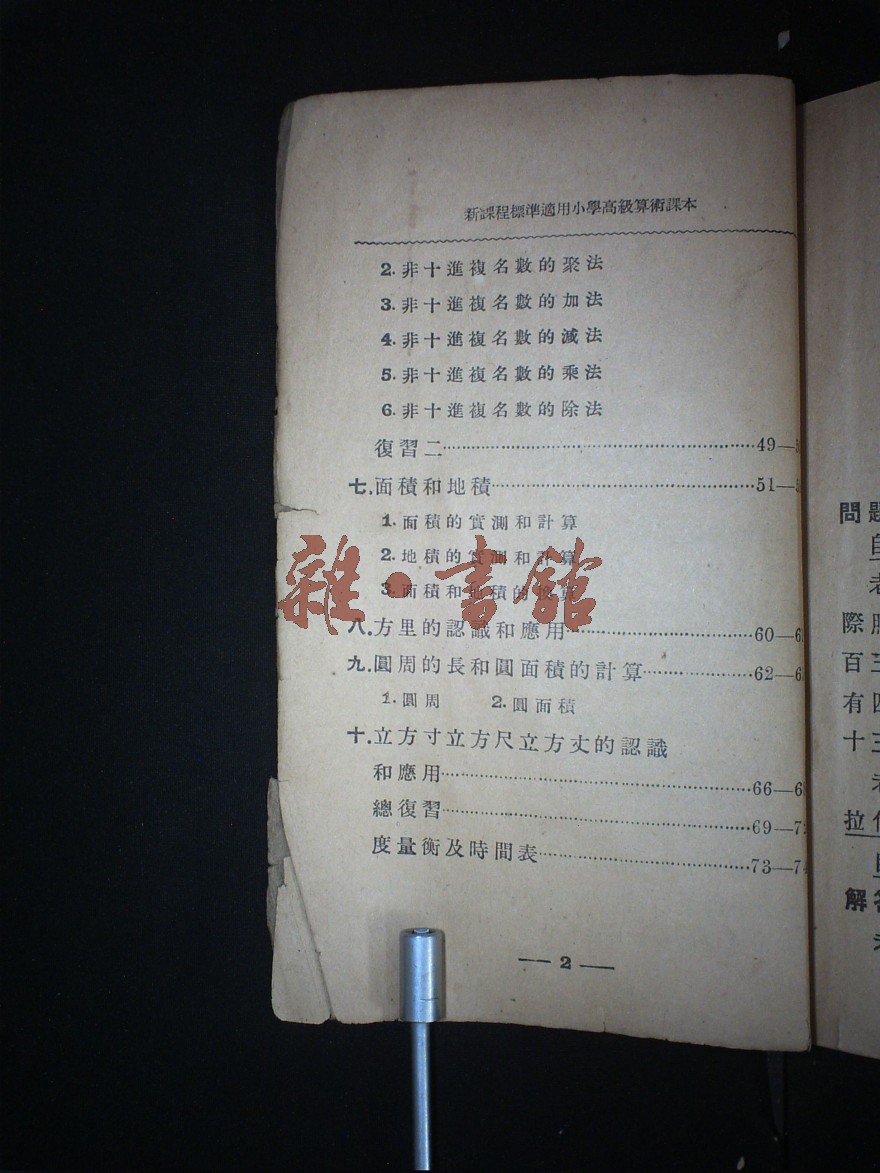 新課程標準適用小學高級算術課本
2. 非十進複名數的聚法
3. 非十進複名數的加法
4. 非十進複名數的減法
5. 非十進複名數的乘法
6. 非十進複名數的除法
復習二……49—
七.面積和地積……51—
1. 面積的實測和計算
2. 地積的實測和計算
3. 面積和地積的換算
八.方里的認識和應用……60—6
九.圓周的長和圓面積的計算……62—6
1. 圓周 2. 圓面積
十.立方寸立方尺立方丈的認識
和應用……66—6
總復習……69—7
度量衡及時間表……73—7
— 2 —
雜·書館
問題
際
百三
有四
十三
拉
解答